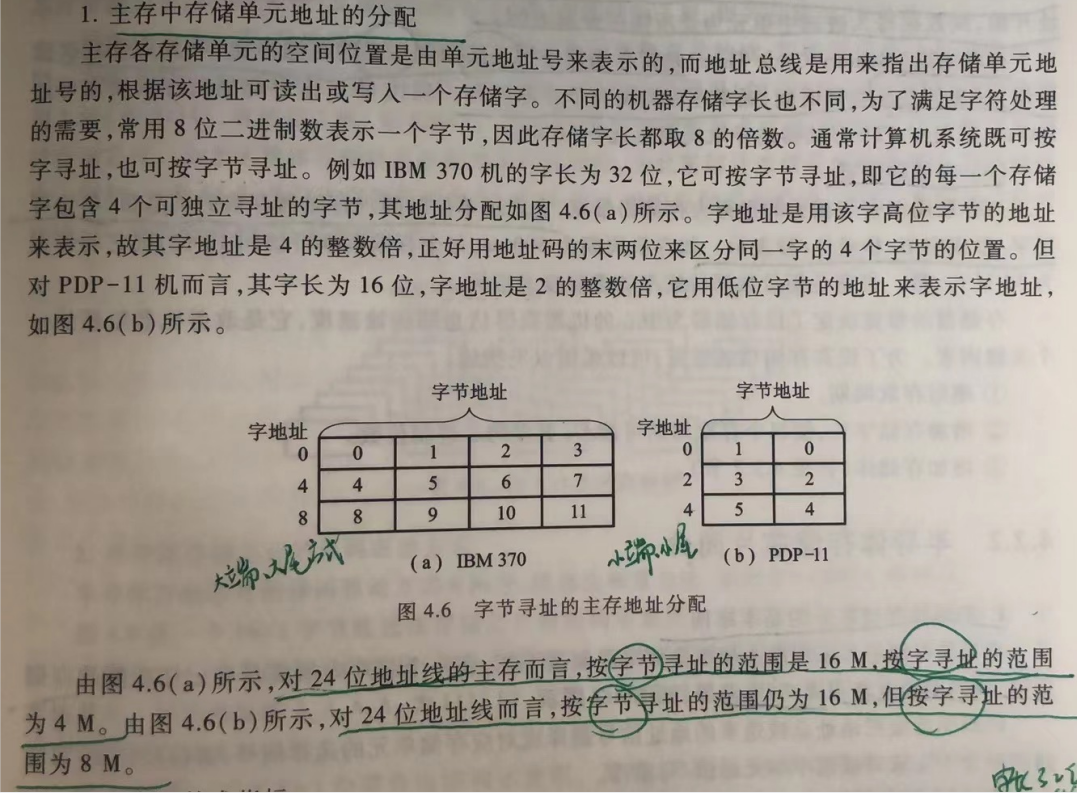 1. 主存中存储单元地址的分配
主存各存储单元的空间位置是由单元地址号来表示的,而地址总线是用来指出存储单元地
址号的,根据该地址可读出或写入一个存储字。不同的机器存储字长也不同,为了满足字符处理
的需要,常用 8 位二进制数表示一个字节,因此存储字长都取 8 的倍数。通常计算机系统既可按
字寻址,也可按字节寻址。例如 IBM 370 机的字长为 32 位,它可按字节寻址,即它的每一个存储
字包含 4 个可独立寻址的字节,其地址分配如图 4.6(a)所示。字地址是用该字高位字节的地址
来表示,故其字地址是 4 的整数倍,正好用地址码的末两位来区分同一字的 4 个字节的位置。但
对 PDP-11 机而言,其字长为 16 位,字地址是 2 的整数倍,它用低位字节的地址来表示字地址,
如图 4.6(b)所示。
字节地址
字地址
0 0 1 2 3
4 4 5 6 7
8 8 9 10 11
大端、大尾方式
(a) IBM 370
字节地址
字地址
0 1 0
2 3 2
4 5 4
小端、小尾
(b) PDP-11
图 4.6 字节寻址的主存地址分配
由图 4.6(a)所示,对 24 位地址线的主存而言,按字节寻址的范围是 16 M,按字寻址的范围
为 4 M。由图 4.6(b)所示,对 24 位地址线而言,按字节寻址的范围仍为 16 M,但按字寻址的范
围为 8 M。